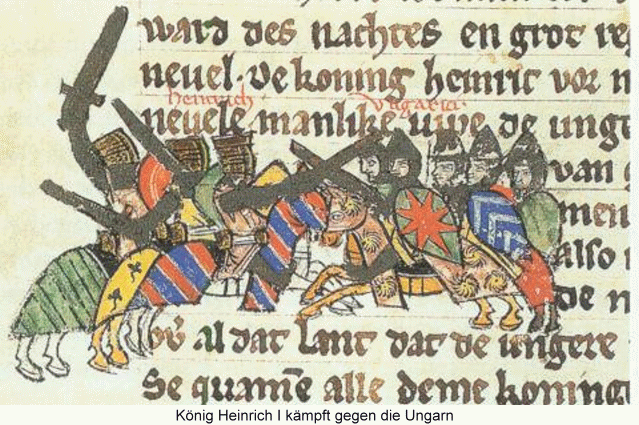 ward des nachtes en grot re
nevel · De koning heinric vor n
heinrich ungarici
nevele manlike uppe de unge
van
men
also
de n
al dat lant dat de ungere
Se quamē alle deme koning
König Heinrich I kämpft gegen die Ungarn